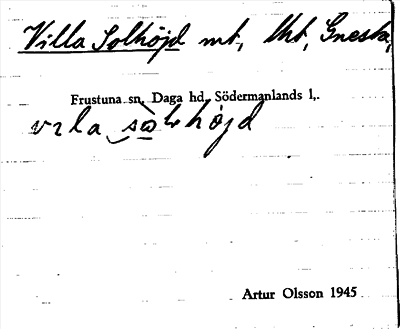 Villa Solhöjd mt, lht, Gnesta,
Frustuna sn, Daga hd, Södermanlands l,.
vɪla sòlhöjd
Artur Olsson 1945